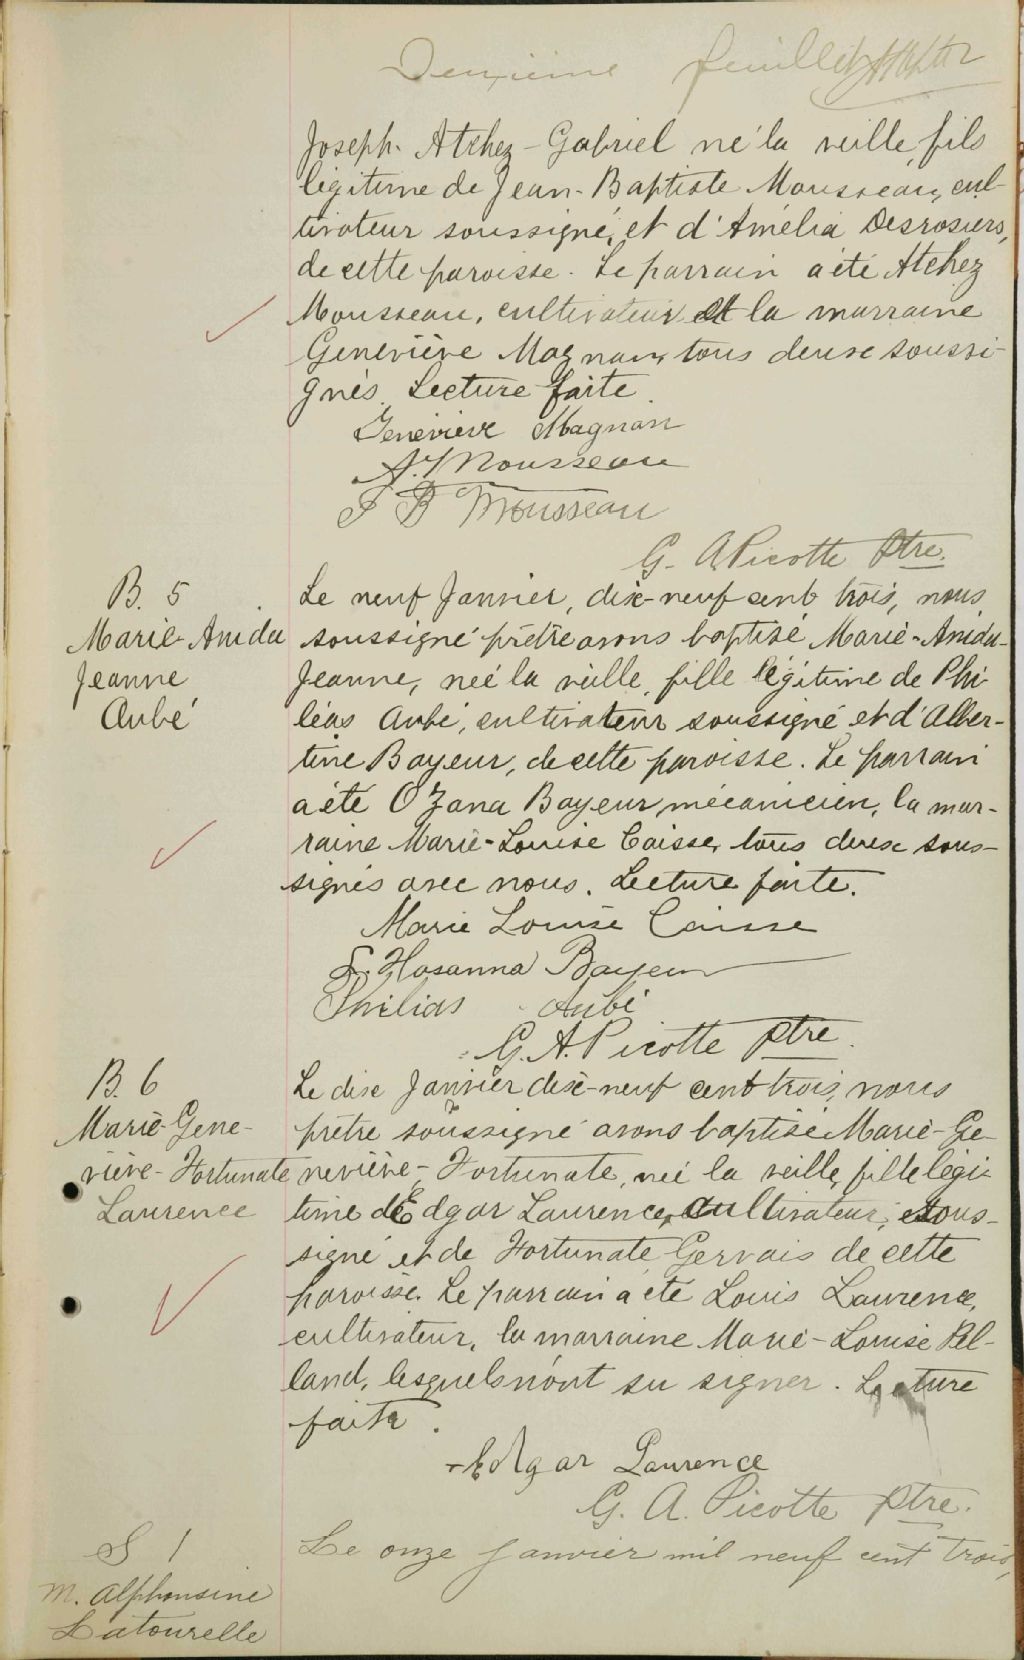 Deuxième feuillet
Joseph-Atchez-Gabriel né la veille, fils
légitime de Jean-Baptiste Mousseau, cul-
tivateur soussigné, et d'Amélia Desrosiers,
de cette paroisse. Le parrain a été Atchez
Mousseau, cultivateur et la marraine
Geneviève Magnan, tous deux soussi-
gnés. Lecture faite.
Geneviève Magnan
A. Mousseau
J B Mousseau
G. A Picotte ptre.
B. 5
Marie-Anida
Jeanne
Aubé
Le neuf Janvier, dix-neuf cent trois, nous
soussigné prêtre avons baptisé Marie-Anida-
Jeanne, née la veille, fille légitime de Phi-
léas Aubé, cultivateur soussigné et d'Alber-
tine Bayeur, de cette paroisse. Le parrain
a été Ozana Bayeur, mécanicien, la mar-
raine Marie-Louise Caisse, tous deux sous-
signés avec nous. Lecture faite.
Marie Louise Caisse
Hosanna Bayeur
Philias Aubé
G. A. Picotte ptre.
B. 6
Marie-Gene-
viève-Fortunate
Laurence
Le dix Janvier dix-neuf cent trois, nous
prêtre soussigné avons baptisé Marie-Ge-
neviève-Fortunate, née la veille, fille légi-
time d'Edgar Laurence, cultivateur, sous-
signé et de Fortunate Gervais de cette
paroisse. Le parrain a été Louis Laurence,
cultivateur, la marraine Marie-Louise Pel-
land, lesquels n'ont su signer. Lecture
faite.
Edgar Laurence
G. A. Picotte ptre.
S 1
M. Alphonsine
Latourelle
Le onze janvier mil neuf cent trois,